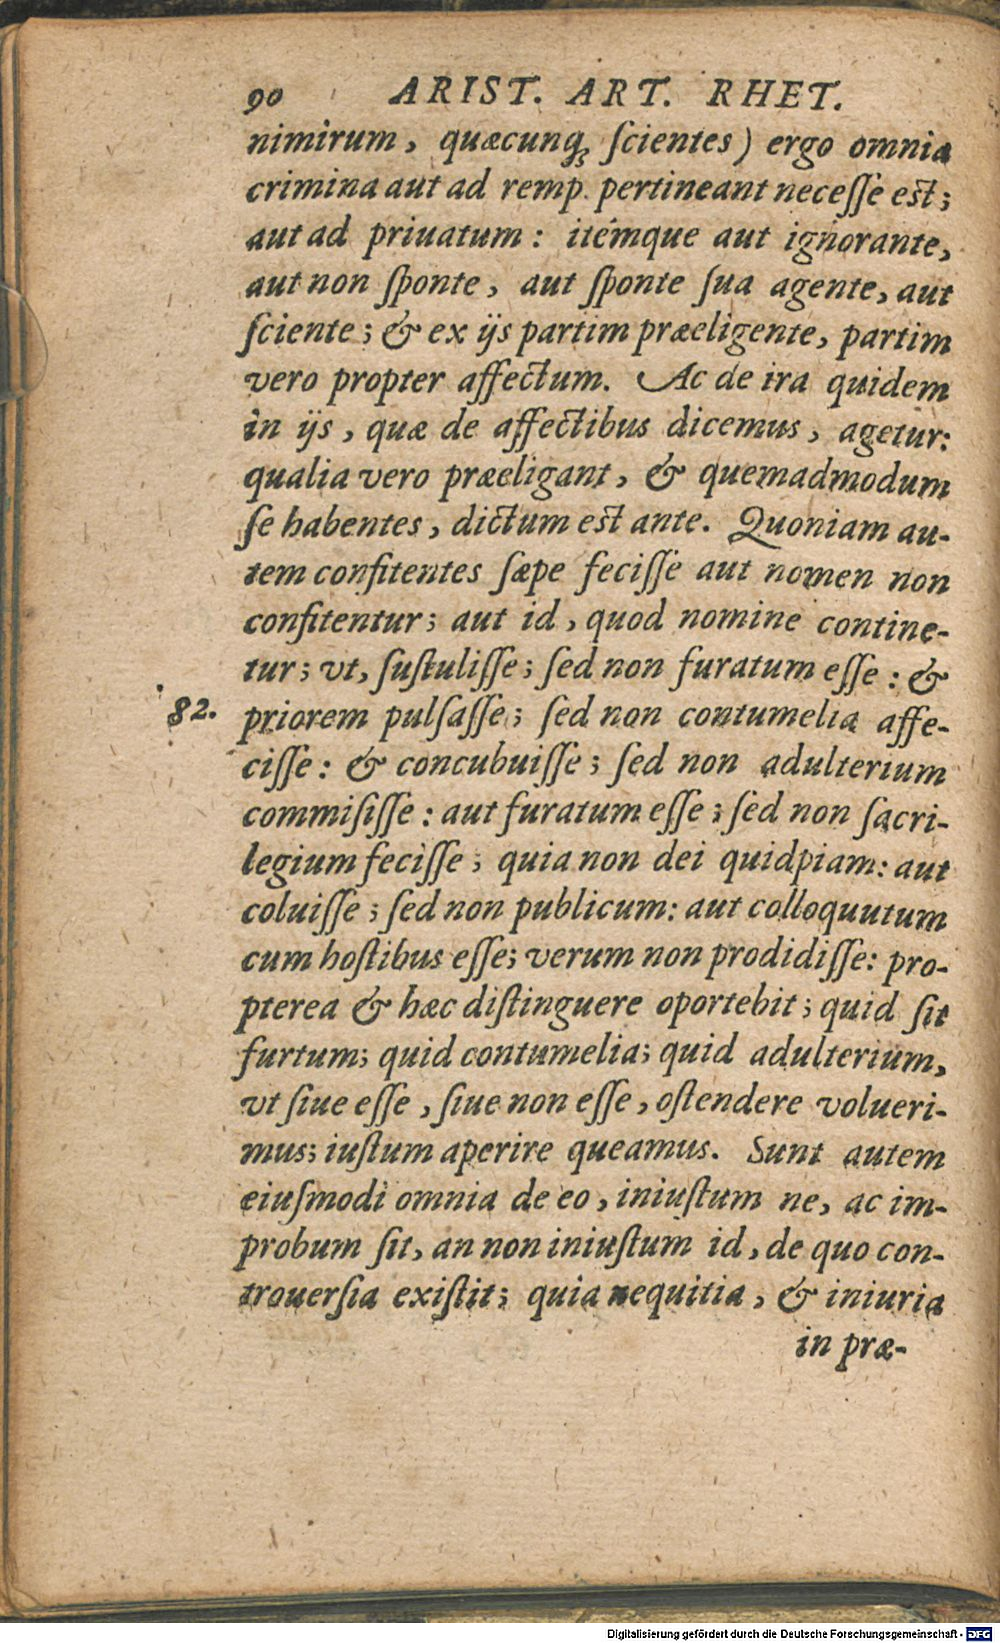 90 ARIST. ART. RHET.
nimirum, quæcunq; ſcientes) ergo omnia
crimina aut ad remp. pertineant neceſſe eſt;
aut ad priuatum: itémque aut ignorante,
aut non ſponte, aut ſponte ſua agente, aut
ſciente; & ex ijs partim præeligente, partim
vero propter affectum. Ac de ira quidem
in ijs, quæ de affectibus dicemus, agetur:
qualia vero præeligant, & quemadmodum
ſe habentes, dictum est ante. Quoniam au-
tem confitentes ſæpe feciſſe aut nomen non
confitentur; aut id, quod nomine contine-
tur; vt, ſuſtuliſſe; ſed non furatum eſſe: &
82. priorem pulſaſſe; ſed non contumelia affe-
ciſſe: & concubuiſſe; ſed non adulterium
commiſiſſe: aut furatum eſſe; ſed non ſacri-
legium feciſſe; quia non dei quidpiam: aut
coluiſſe; ſed non publicum: aut colloquutum
cum hoſtibus eſſe; verum non prodidiſſe: pro-
pterea & hæc diſtinguere oportebit; quid ſit
furtum; quid contumelia; quid adulterium,
vt ſiue eſſe, ſiue non eſſe, oſtendere volueri-
mus; iuſtum aperire queamus. Sunt autem
eiuſmodi omnia de eo, iniuſtum ne, ac im-
probum ſit, an non iniuſtum id, de quo con-
trouerſia exiſtit; quia nequitia, & iniuria
in præ-
Digitalisierung gefördert durch die Deutsche Forschungsgemeinschaft - DFG